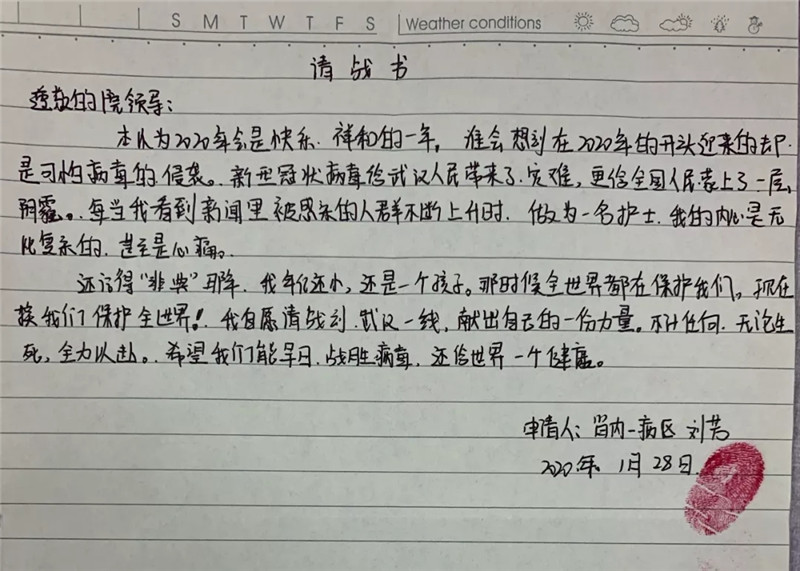 S M T W T F S Weather conditions
请战书
尊敬的院领导：
本以为2020年会是快乐、祥和的一年，谁会想到在2020年的开头迎来的却
是可怕病毒的侵袭。新型冠状病毒给武汉人民带来了灾难，更给全国人民蒙上了一层
阴霾。每当我看到新闻里被感染的人群不断上升时，做为一名护士，我的内心是无
比复杂的，甚至是心痛。
还记得“非典”那年，我年纪还小，还是一个孩子。那时候全世界都在保护我们，现在
换我们保护全世界！我自愿请战到武汉一线，献出自己的一份力量。不计任何，无论生
死，全力以赴。希望我们能早日战胜病毒，还给世界一个健康。
申请人：肾内一病区 刘芳
2020年1月28日